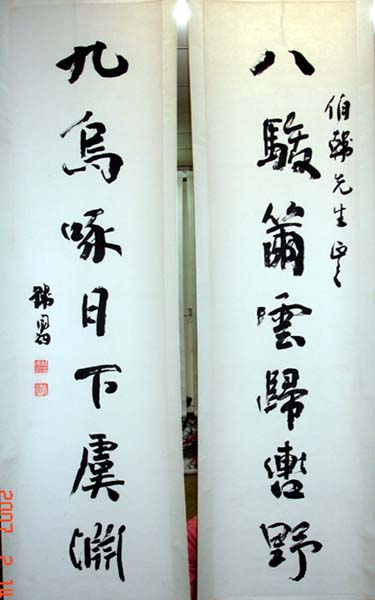 八駿籋雲歸轡野
伯韓先生正之
九烏啄日下虞淵
2007 2 14